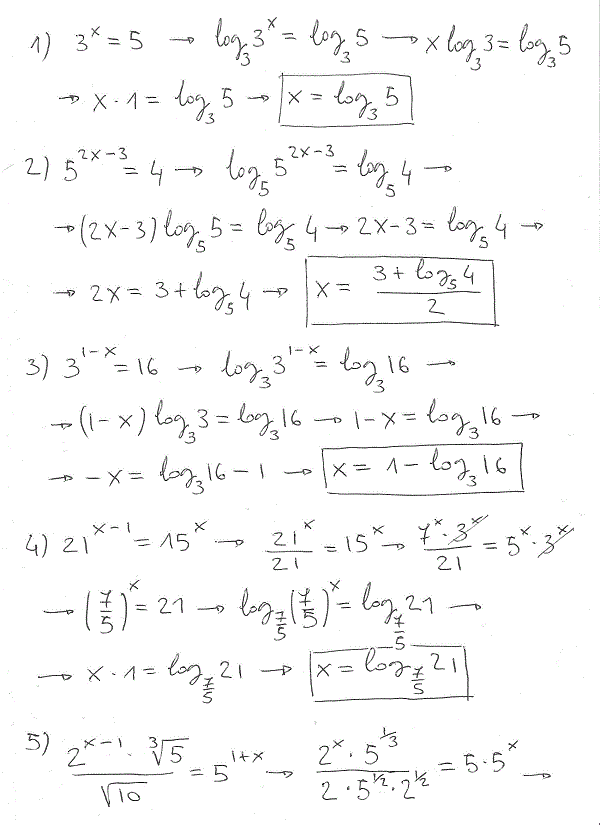 1) 3^x = 5 → log_3 3^x = log_3 5 → x log_3 3 = log_3 5
→ x · 1 = log_3 5 → x = log_3 5
2) 5^(2x-3) = 4 → log_5 5^(2x-3) = log_5 4 →
→ (2x-3) log_5 5 = log_5 4 → 2x-3 = log_5 4 →
→ 2x = 3 + log_5 4 → x = (3 + log_5 4)/2
3) 3^(1-x) = 16 → log_3 3^(1-x) = log_3 16 →
→ (1-x) log_3 3 = log_3 16 → 1-x = log_3 16 →
→ -x = log_3 16 - 1 → x = 1 - log_3 16
4) 21^(x-1) = 15^x → 21^x/21 = 15^x → (7^x · 3^x)/21 = 5^x · 3^x
→ (7/5)^x = 21 → log_(7/5) (7/5)^x = log_(7/5) 21 →
→ x · 1 = log_(7/5) 21 → x = log_(7/5) 21
5) (2^(x-1) · ∛5)/√10 = 5^(1+x) → (2^x · 5^(1/3))/(2 · 5^(1/2) · 2^(1/2)) = 5 · 5^x →